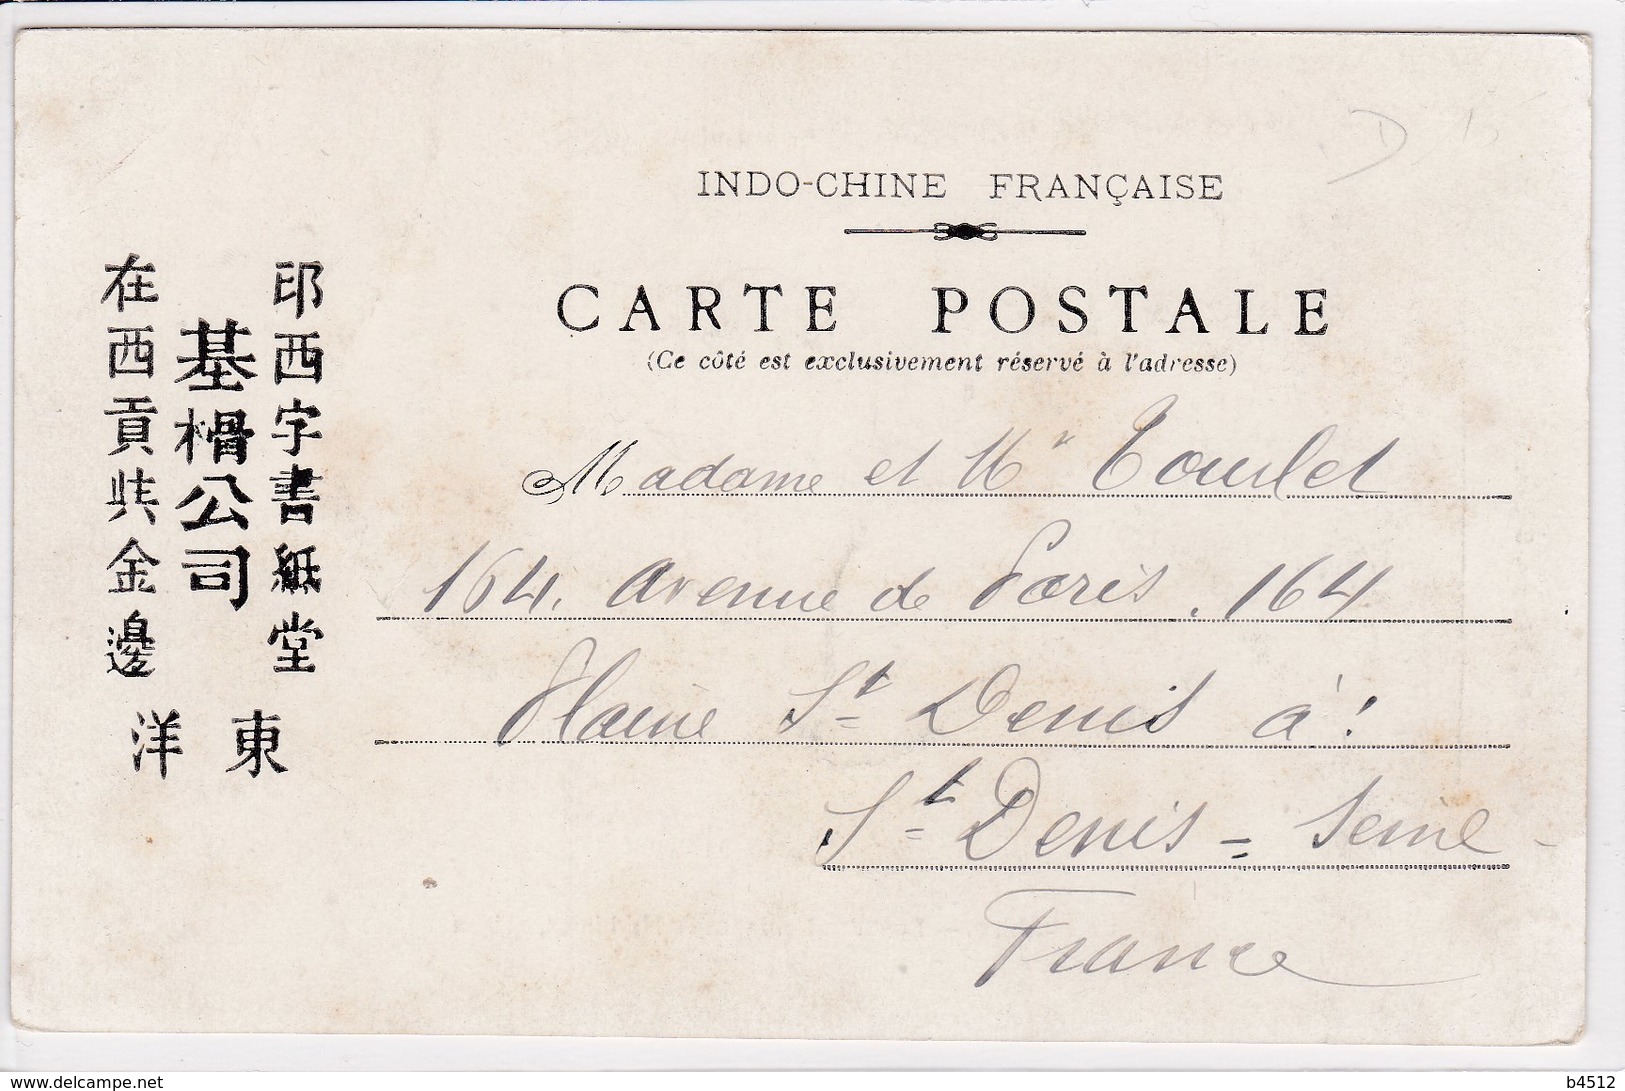 INDO-CHINE FRANÇAISE
CARTE POSTALE
(Ce côté est exclusivement réservé à l'adresse)
印西字書紙堂
基榾公司
在西貢共金邊
東洋
Madame et Mr Tourlet
164. Avenue de Paris. 164
Plaine St Denis à:
St Denis = Seine -
France
www.delcampe.net
b4512